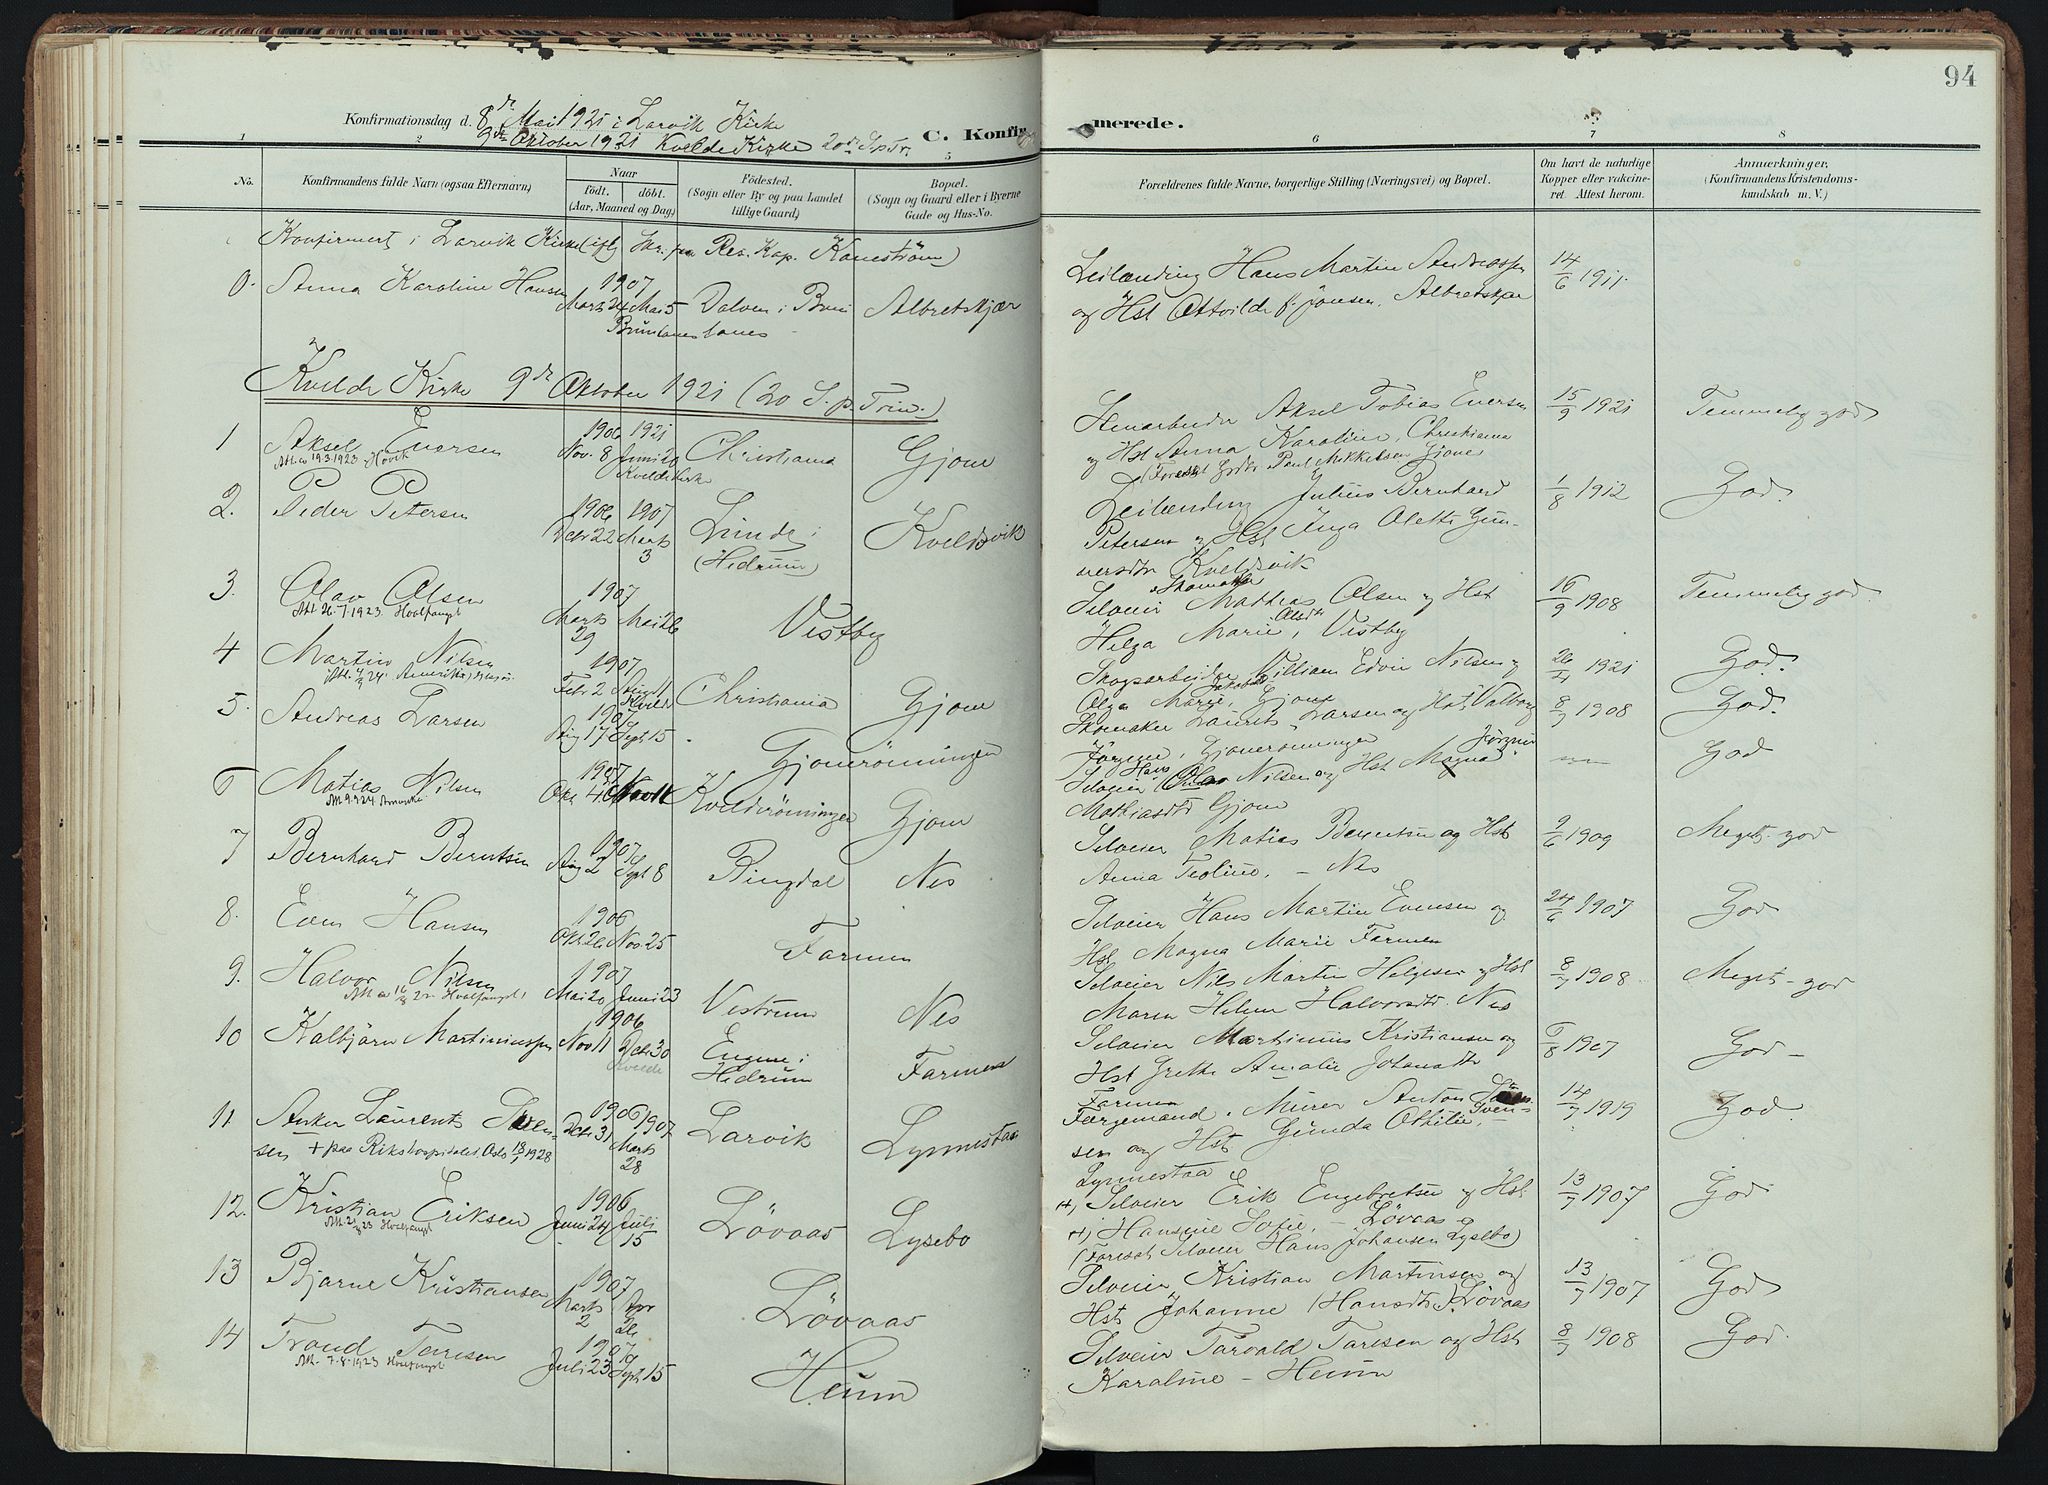 94
Konfirmationsdag d. 8de Mai 1921 i Larvik Kirke
9de Oktober 1921 Kvelde Kirke 20de S. p. Tr.
C. Konfirmerede.
1 2 5 6 7 8
No.
Konfirmandens fulde Navn (ogsaa Efternavn)
Naar
födt. döbt.
(Aar, Maaned og Dag)
Födested.
(Sogn eller By og paa Landet
tillige Gaard)
Bopæl.
(Sogn og Gaard eller i Byerne
Gade og Hus-No.
Forældrenes fulde Navne, borgerlige Stilling (Næringsvei) og Bopæl.
Om havt de naturlige
Kopper eller vakcine-
ret. Attest herom.
Anmærkninger.
(Konfirmandens Kristendoms-
kundskab m. V.)
Konfirmert i Larvik Kirke (iflg. Skr. fra Res. Kap. Kanestrøm)
0. Anna Karoline Hansen 1907 Marts 24 Mai 5 Brunlanes Dolven i Brunlanes Albretskjær
Leilending Hans Martin Andreassen
og Hst Ottvilde f. Jonsen. Albretskjær
14/6 1911.
Kvelde Kirke 9de Oktober 1921 (20 S. p. Trin.)
1 Aksel Eversen 1906 Nov. 8 1921 Juni 20 Kvelde Kirke Christiania Gjone
Att. av 19.3.1923 Høvik
Stenarbeider Aksel Tobias Eversen
og Hst Anna Karoline, Christiania
(Foresat Grdbr. Paul Mikkelsen Gjone)
15/9 1921 Temmelig god
2. Peder Petersen 1906 Decbr 22 1907 Marts 3 Linde i (Hedrum) Kveldsvik
Leilending Julius Bernhard
Petersen og Hst Inga Olette Gun-
nersdtr Kveldsvik
1/8 1912 God.
3. Olav Olsen 1907 Marts 29 Mai 26 Vestby
Att. 26.7.1923. Hvalfangst
Selveier Skomaker Mathias Olsen og Hst
Helga Marie Olsdtr, Vestby
16/9 1908 Temmelig god.
4 Martin Nilsen 1907 Febr 2 Kvelde Christiania Gjone
Skogsarbeider William Edvin Nilsen og
Olga Marie Jakobsd, Gjone
1921 God.
5. Andreas Larsen 1907 Aug 17 Sept 15 Gjonerönningen
Skomaker Laurits Larsen og Hst Valborg
Jørgine, Gjonerönningen
8/7 1908 God.
6 Matias Nilsen 1907 Okt 4 Kvelderönningen Gjone
Selveier Hans Olav Nilsen og Hst Magna Jörgine
Mathiasdtr Gjone
God
7 Bernhard Berntsen 1907 Aug 2 Sept 8 Ringdal Nes
Selveier Matias Berntsen og Hst
Anna Teoline. – Nes
9/6 1909 Meget god
8. Even Hansen 1906 Okt 26 Nov 25 Farmen
Selveier Hans Martin Evensen og
Hst Magna Marie Farmen
24/6 1907 God
9. Halvor Nilsen 1907 Mai 20 Juni 23 Vestrum Nes
Selveier Nils Martin Helgesen og Hst
Maren Helene Halvorsdtr. Nes
8/7 1908. Meget – god
10 Kalbjörn Martiniussen 1906 Nov 11 Decbr 30 Kvelde Engene i Hedrum Farmen
Selveier Martinius Kristiansen og
Hst Grethe Amalie Johansdtr
Farmen
6/8 1907 God –
11 Anker Laurents Sven-
sen 1906 Decbr 31 1907 Marts 28 Larvik Lynnestaa
+ paa Rikshospitalet. Oslo 13/7 1928
Færgemand, Murer Anton Sven-
sen og Hst Gunda Othilie, –
Lynnestaa
14/7 1919 God
12. Kristian Eriksen 1906 Juni 24 Juli 15 Lövaas Lysebo
+) Selveier Erik Engebretsen og Hst
+) Hansine Sofie, – Lövaas
(Foresat Selveier Hans Johansen Lysebo)
13/7 1907 God
13 Bjarne Kristiansen 1907 Marts 2 Apr 26 Lövaas
Selveier Kristian Martinsen og
Hst Johanne (Hansdtr) Lövaas
13/7 1907 God
14 Trond Taresen 1907 Juli 23 Sept 15 Heum
Att. 7.8.1923 Hvalfangst
Selveier Torvald Taresen og Hst
Karoline – Heum
8/7 1908 God